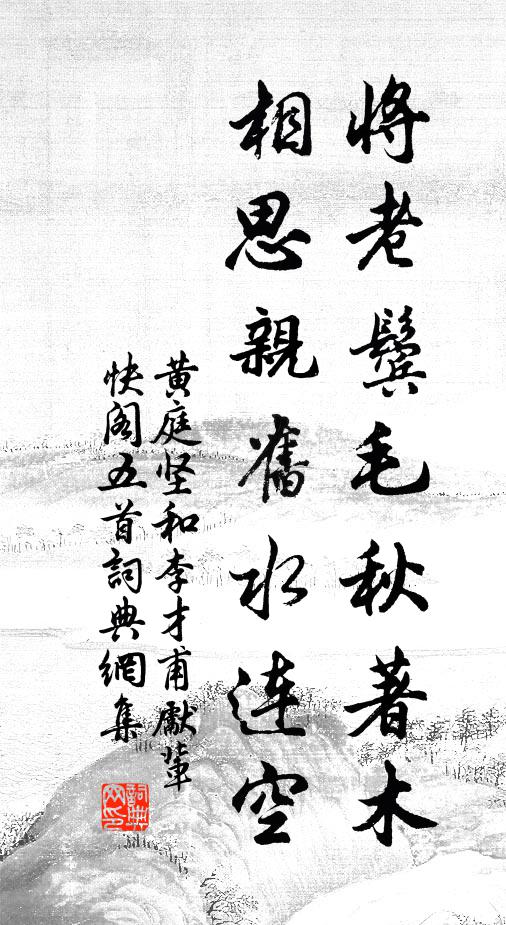 将老鬓毛秋著木
相思親舊水連空
黄庭坚和李才甫獻輩
快阁五首詞典網集
詞典網印